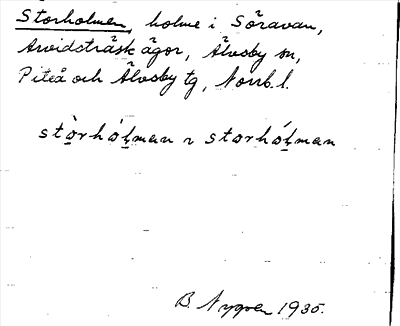 Storholmen, holme i Söravan,
Arvidsträsk ägor, Älvsby sn,
Piteå och Älvsby tg, Norrb. l.
stòrhólman ~ storhólman
B. Nygren 1935.